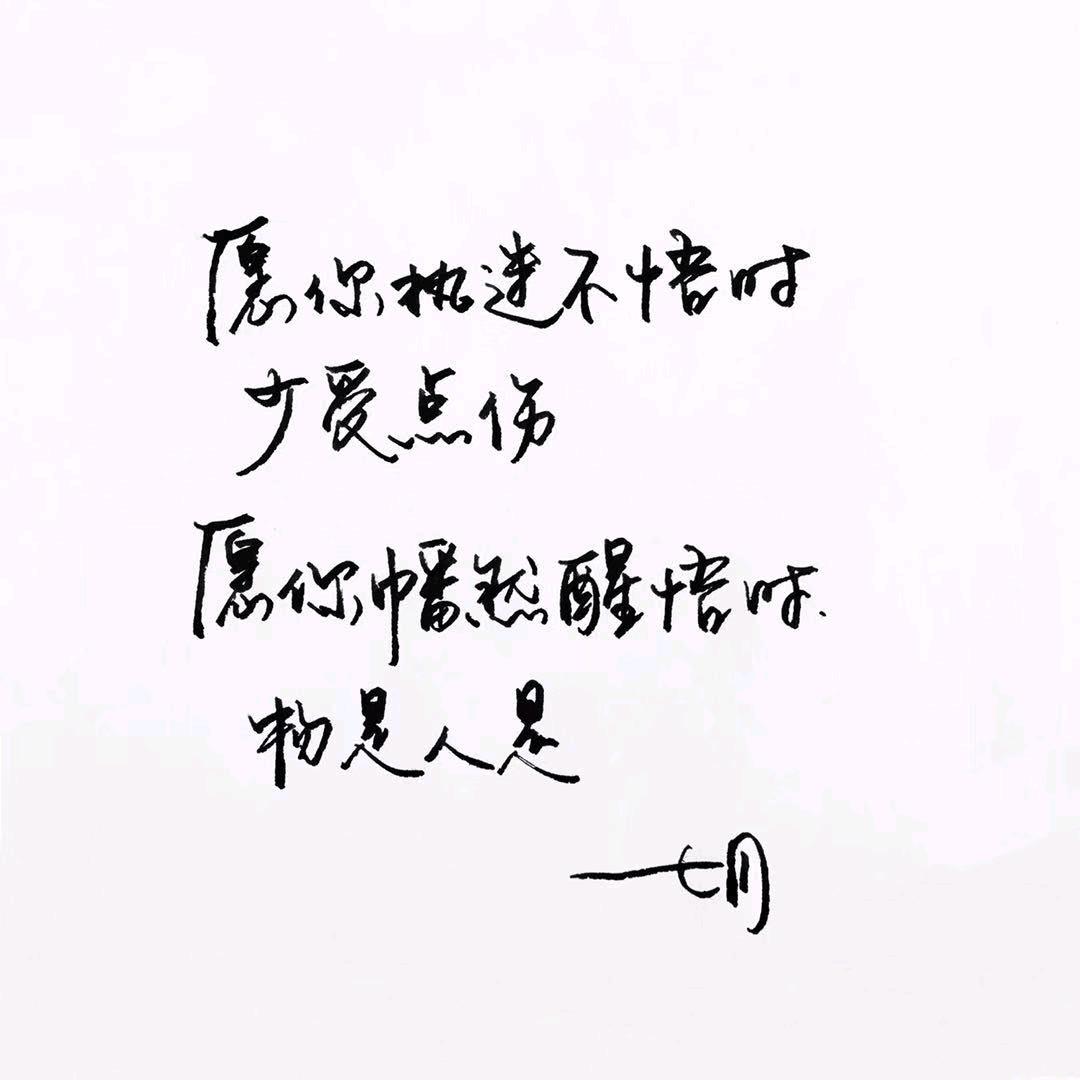 愿你执迷不悟时
少受点伤
愿你幡然醒悟时
物是人是
七月